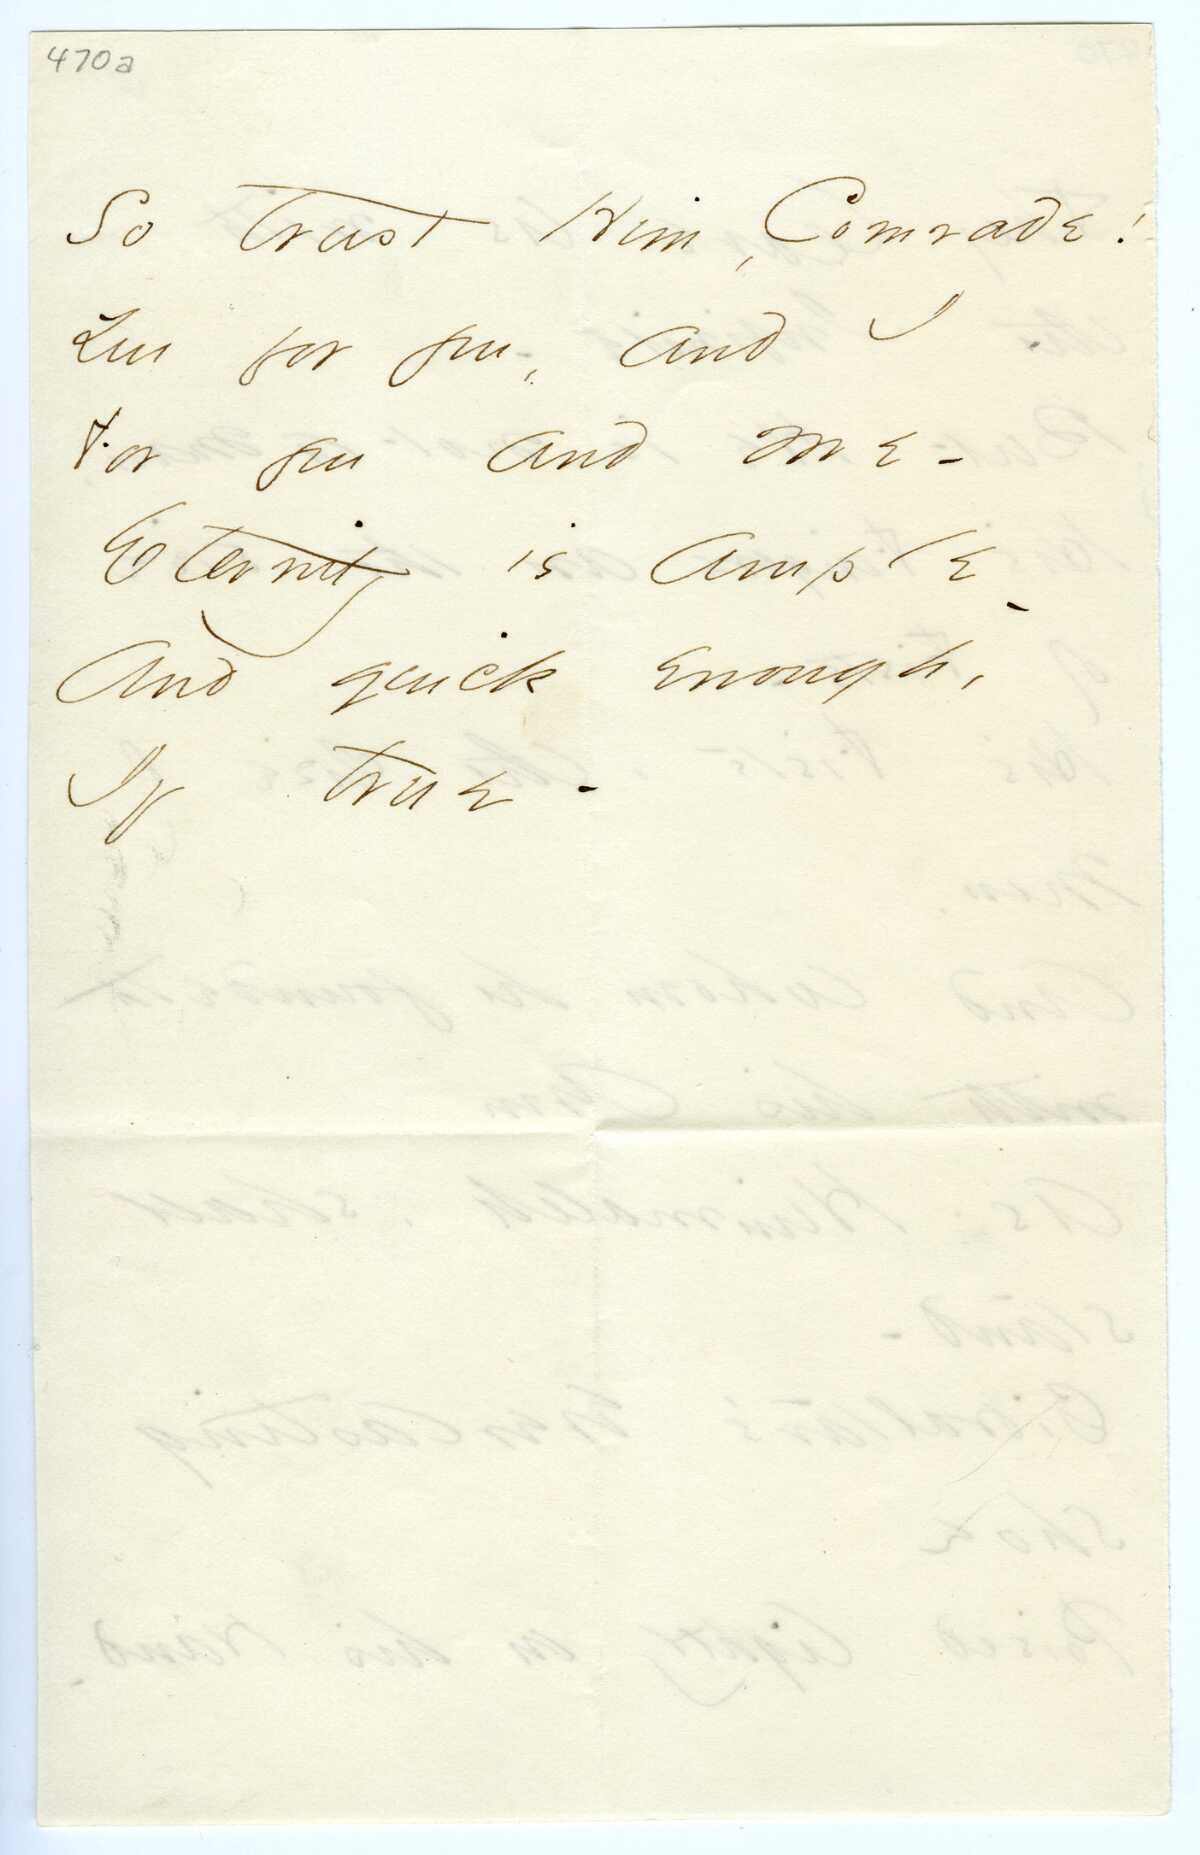 470a
So trust him, Comrade!
You for you, and I
For you and me -
Eternity is ample -
And quick enough,
If true -